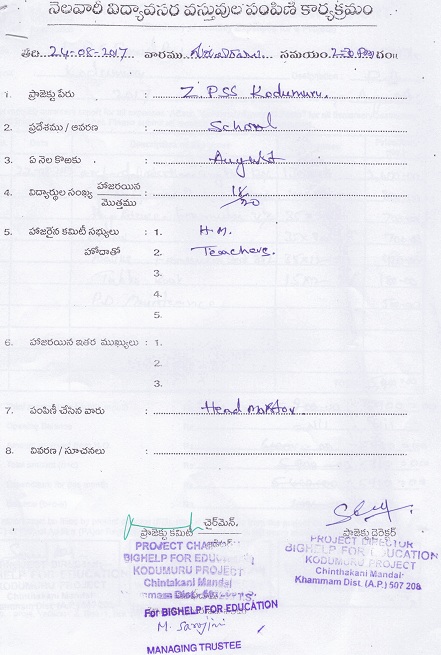 నెలవారీ విద్యావసర వస్తువుల పంపిణి కార్యక్రమం
తేది. 24-08-2017 వారము గురువారం సమయం. 2-30 PM దం॥
1. ప్రాజెక్టు పేరు : Z.P.S.S Kodumuru.
2. ప్రదేశము / ఆవరణ : School
3. ఏ నెల కొఱకు : August
4. విద్యార్థుల సంఖ్య హాజరయిన / మొత్తము : 18/20
5. హాజరైన కమిటీ సభ్యులు : 1. H.M.
హోదాతో 2. Teachers.
3.
4.
5.
6. హాజరయిన ఇతర ముఖ్యులు : 1.
2.
3.
7. పంపిణీ చేసిన వారు : Head master
8. వివరణ / సూచనలు :
ప్రాజెక్టు కమిటీ ఛైర్మెన్,
ప్రాజెక్టు డైరెక్టర్
PROJECT
BIGHELP FOR EDUCATION
KODUMURU PROJECT
Chintakani Mandal
PROJECT DIRECTOR
BIGHELP FOR EDUCATION
KODUMURU PROJECT
Chinthakani Mandal
Khammam Dist. (A.P.) 507 208
For BIGHELP FOR EDUCATION
M. Sarojini
MANAGING TRUSTEE